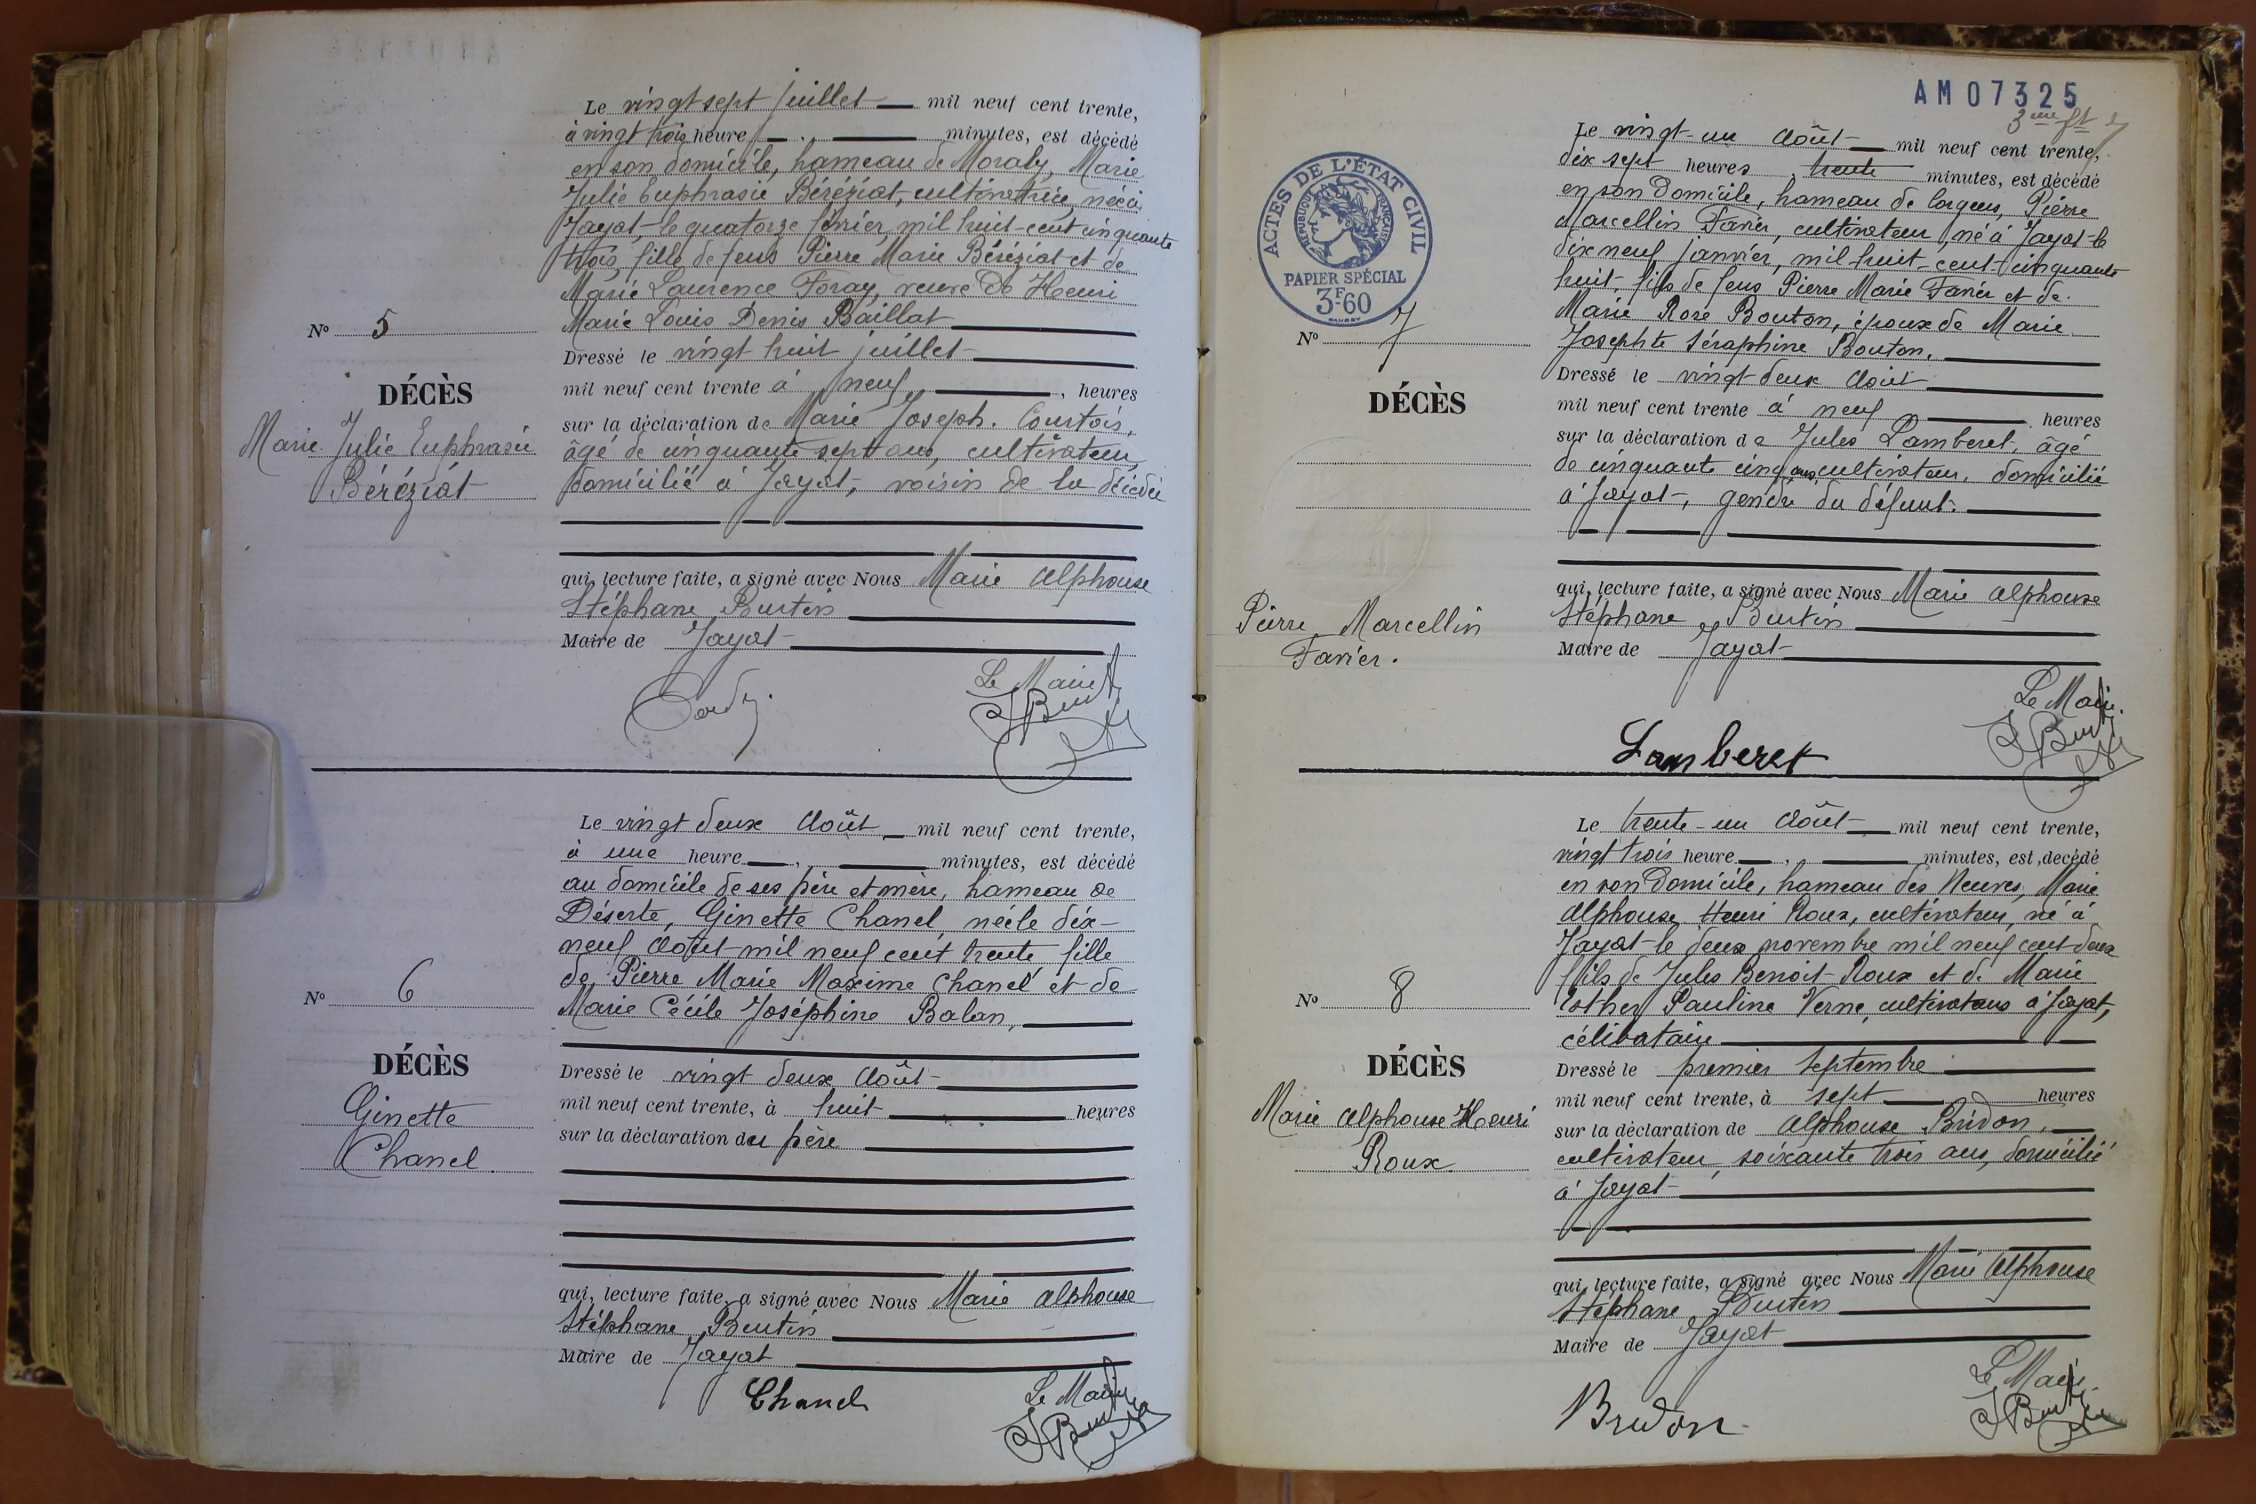 Le vingt sept juillet mil neuf cent trente,
à vingt trois heure , minutes, est décédé
en son domicile, hameau de Moraly, Marie
Julie Euphrasie Béréziat, cultivatrice, née à
Jayat, le quatorze février, mil huit-cent cinquante
trois, fille de feus Pierre Marie Béréziat et de
Marie Laurence Foray, veuve de Henri
Marie Louis Denis Baillat
Dressé le vingt huit juillet
mil neuf cent trente à neuf , heures
sur la déclaration de Marie Joseph. Courtois,
âgé de cinquante sept ans, cultivateur,
domicilié à Jayat, voisin de la décédée
qui, lecture faite, a signé avec Nous Marie Alphonse
Stéphane Burtin
Maire de Jayat
Le Maire
N° 5
DÉCÈS
Marie Julie Euphrasie
Béréziat
Le vingt deux Août mil neuf cent trente,
à une heure , minutes, est décédé
au domicile de ses père et mère, hameau de
Déserte, Ginette Chanel, née le dix-
neuf Août mil neuf cent trente fille
de Pierre Marie Maxime Chanel et de
Marie Cécile Joséphine Balan,
Dressé le vingt deux Août
mil neuf cent trente, à huit heures
sur la déclaration du père
qui, lecture faite, a signé avec Nous Marie Alphonse
Stéphane Burtin
Maire de Jayat
Chanel
Le Maire
N° 6
DÉCÈS
Ginette
Chanel.
AM07325
3me ft
ACTES DE L'ÉTAT CIVIL
RÉPUBLIQUE FRANÇAISE
PAPIER SPÉCIAL
3F-60
Le vingt-un Août mil neuf cent trente,
dix sept heures trente minutes, est décédé
en son domicile, hameau de Longeus, Pierre
Marcellin Favier, cultivateur, né à Jayat le
dix neuf janvier, mil huit-cent-cinquante
huit, fils de feus Pierre Marie Favier et de
Marie Rose Bouton, époux de Marie
Josephte Séraphine Bouton.
Dressé le vingt deux Août
mil neuf cent trente à neuf heures
sur la déclaration de Jules Lamberet, âgé
de cinquante cinq ans, cultivateur, domicilié
à Jayat, gendre du défunt.
qui, lecture faite, a signé avec Nous Marie Alphonse
Stéphane Burtin
Maire de Jayat
Le Maire.
Lamberet
N° 7
DÉCÈS
Pierre Marcellin
Favier.
Le trente-un Août mil neuf cent trente,
vingt trois heure , minutes, est décédé
en son domicile, hameau des Neuves, Marie
Alphonse Henri Roux, cultivateur, né à
Jayat le deux novembre mil neuf cent deux
fils de Jules Benoit Roux et de Marie
Esther Pauline Verne, cultivateurs à Jayat,
célibataire
Dressé le premier Septembre
mil neuf cent trente, à sept heures
sur la déclaration de Alphonse Bridon,
cultivateur, soixante trois ans, domicilié
à Jayat
qui, lecture faite, a signé avec Nous Marie Alphonse
Stéphane Burtin
Maire de Jayat
Le Maire.
Bridon
N° 8
DÉCÈS
Marie Alphonse Henri
Roux